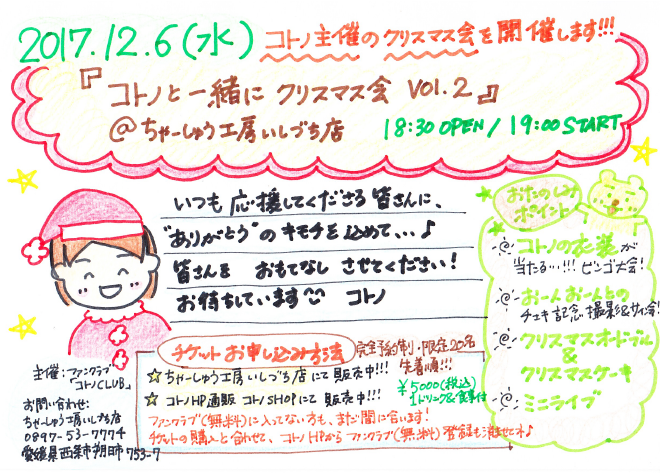 2017.12.6(水) コトノ主催のクリスマス会を開催します!!!
『コトノと一緒に クリスマス会 VOl.2』
@ちゃーしゅう工房いしづち店 18:30 OPEN / 19:00 START
いつも 応援してくださる 皆さんに、
"ありがとう"の キモチを 込めて...♪
皆さんを おもてなし させてください!
お待ちしています コトノ
おたのしみ
ポイント
コトノの衣装が
当たる...!!! ビンゴ大会!
おーんおーんとの
チェキ記念撮影&サイン会!
クリスマスオードブル
&
クリスマスケーキ
ミニライブ
チケットお申し込み方法 完全予約制・限定20名
先着順!!!
☆ちゃーしゅう工房いしづち店にて 販売中!!!
☆コトノHP通販 コトノSHOPにて 販売中!!!
¥5000(税込)
1ドリンク&食事付
ファンクラブ(無料)に入ってない方も、まだ間に合います!
チケットの購入と合わせて、コトノHPからファンクラブ(無料)登録も済ませてネ♪
主催:ファンクラブ
「コトノCLUB」
お問い合わせ:
ちゃーしゅう工房いしづち店
0897-53-7774
愛媛県西条市朔日市753-7